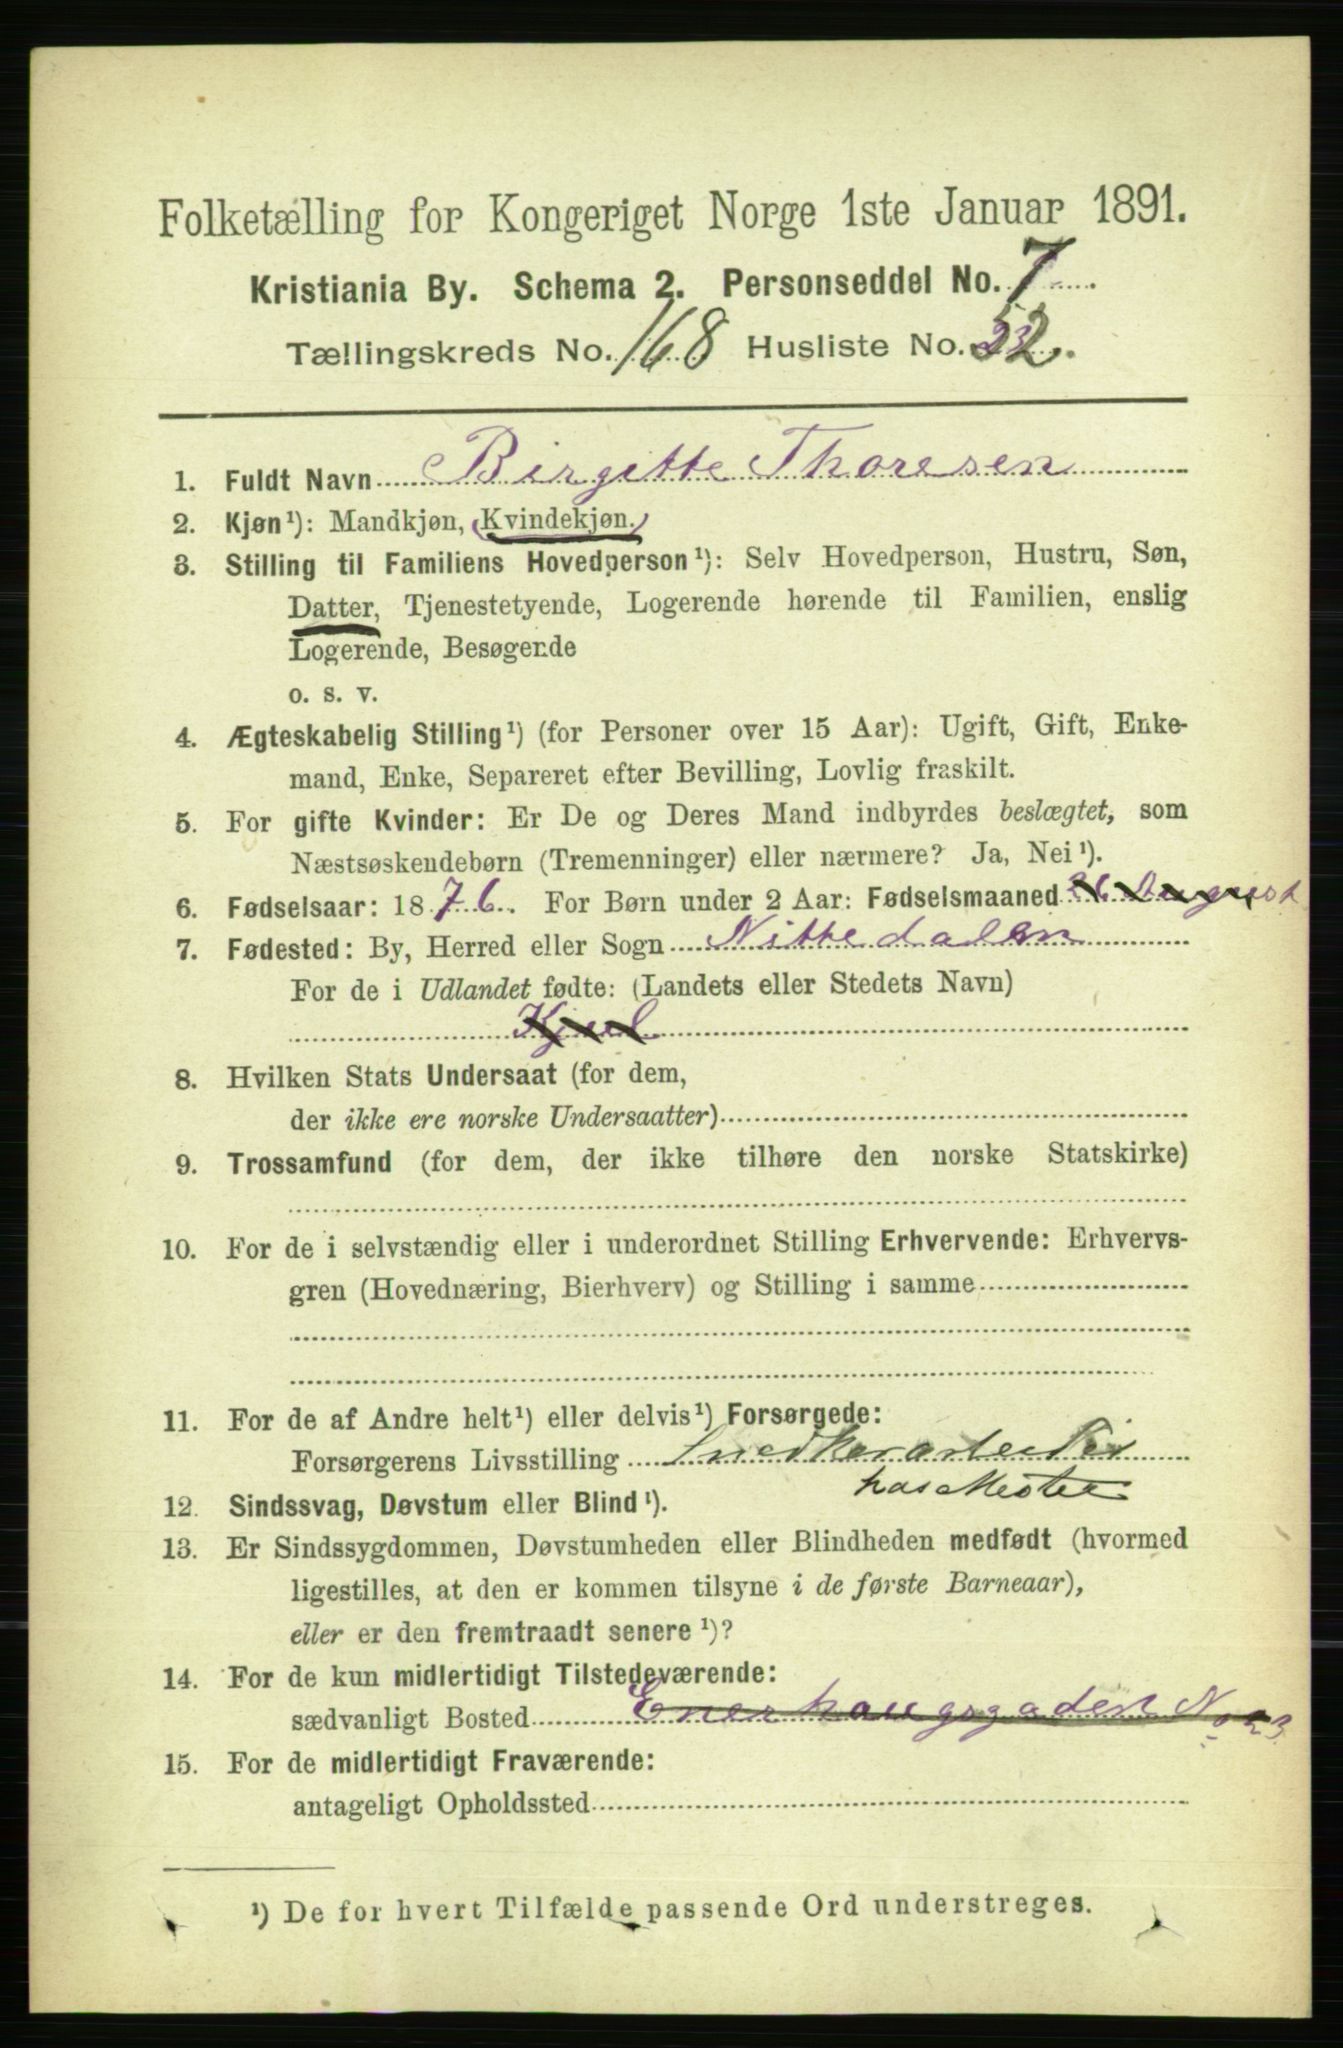 Folketælling for Kongeriget Norge 1ste Januar 1891.
Kristiania By. Schema 2. Personseddel No. 7
Tællingskreds No. 168 Husliste No. 52.
1. Fuldt Navn Birgitte Thoresen
2. Kjøn¹): Mandkjøn, (Kvindekjøn.)
3. Stilling til Familiens Hovedperson¹): Selv Hovedperson, Hustru, Søn,
Datter, Tjenestetyende, Logerende hørende til Familien, enslig
Logerende, Besøgende
o. s. v.
4. Ægteskabelig Stilling¹) (for Personer over 15 Aar): Ugift, Gift, Enke-
mand, Enke, Separeret efter Bevilling, Lovlig fraskilt.
5. For gifte Kvinder: Er De og Deres Mand indbyrdes beslægtet, som
Næstsøskendebørn (Tremenninger) eller nærmere? Ja, Nei¹).
6. Fødselsaar: 1876. For Børn under 2 Aar: Fødselsmaaned 26 August
7. Fødested: By, Herred eller Sogn Nittedalen
For de i Udlandet fødte: (Landets eller Stedets Navn)
Kjul
8. Hvilken Stats Undersaat (for dem,
der ikke ere norske Undersaatter)
9. Trossamfund (for dem, der ikke tilhøre den norske Statskirke)
10. For de i selvstændig eller i underordnet Stilling Erhvervende: Erhvervs-
gren (Hovednæring, Bierhverv) og Stilling i samme
11. For de af Andre helt¹) eller delvis¹) Forsørgede:
Forsørgerens Livsstilling Snedkerarbeider
hos Mester
12. Sindssvag, Døvstum eller Blind¹).
13. Er Sindssygdommen, Døvstumheden eller Blindheden medfødt (hvormed
ligestilles, at den er kommen tilsyne i de første Barneaar),
eller er den fremtraadt senere¹)?
14. For de kun midlertidigt Tilstedeværende:
sædvanligt Bosted Enerhaugsgaden No 23
15. For de midlertidigt Fraværende:
antageligt Opholdssted
¹) De for hvert Tilfælde passende Ord understreges.